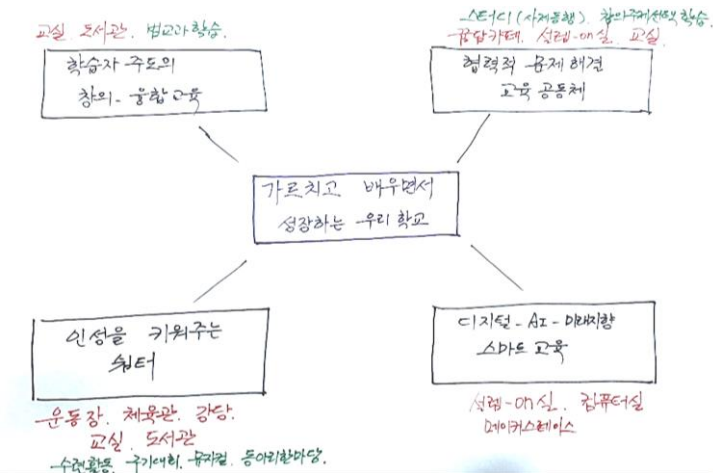 교실. 도서관. 범교과학습.
학습자 주도의
창의-융합교육
스터디(사제동행). 창의주제선택학습.
꿈담카페. 설렘-on실. 교실.
협력적 문제해결
교육공동체
가르치고 배우면서
성장하는 우리학교
인성을 키워주는
쉼터
운동장. 체육관. 강당.
교실. 도서관
수련활동. 구기대회. 뮤지컬. 동아리한마당.
디지털-AI-미래지향
스마트교육
설렘-on실. 컴퓨터실
메이커스페이스